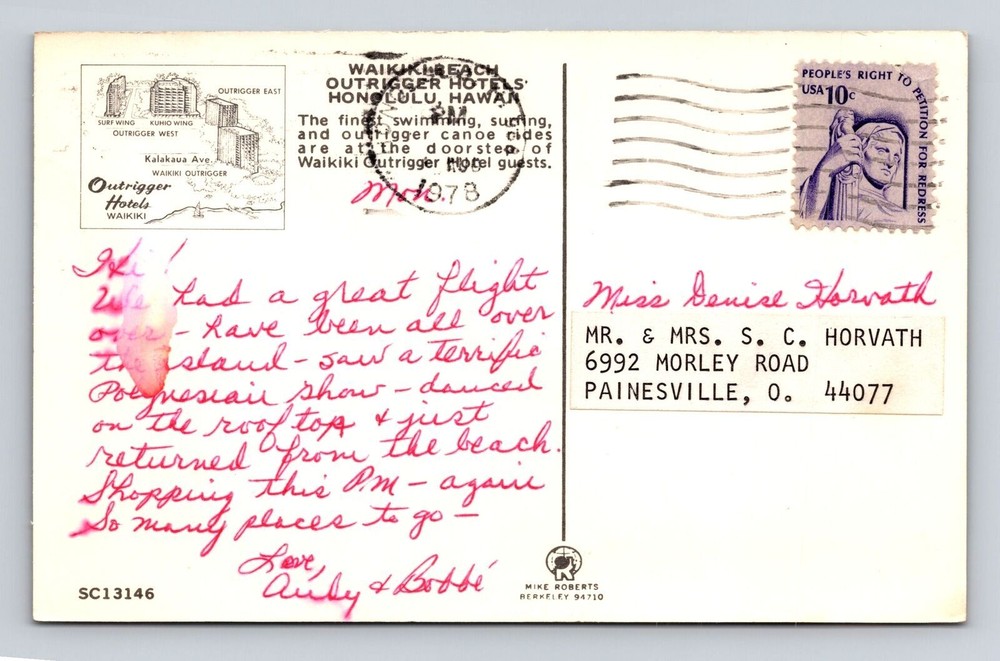 OUTRIGGER EAST
SURF WING KUHIO WING
OUTRIGGER WEST
Kalakaua Ave.
WAIKIKI OUTRIGGER
Outrigger
Hotels
WAIKIKI
WAIKIKI BEACH
OUTRIGGER HOTELS
HONOLULU, HAWAII
The finest swimming, surfing,
and outrigger canoe rides
are at the doorstep of
Waikiki Outrigger Hotel guests.
PM
1978
Mon.
Hi!
We had a great flight
over - have been all over
the island - saw a terrific
Polynesian show - danced
on the rooftop & just
returned from the beach.
Shopping this P.M - again
So many places to go -
Love,
Andy & Bobbé
SC13146
MIKE ROBERTS
BERKELEY 94710
PEOPLE'S RIGHT TO PETITION FOR REDRESS
USA 10c
Miss Denise Horvath
MR. & MRS. S. C. HORVATH
6992 MORLEY ROAD
PAINESVILLE, O. 44077